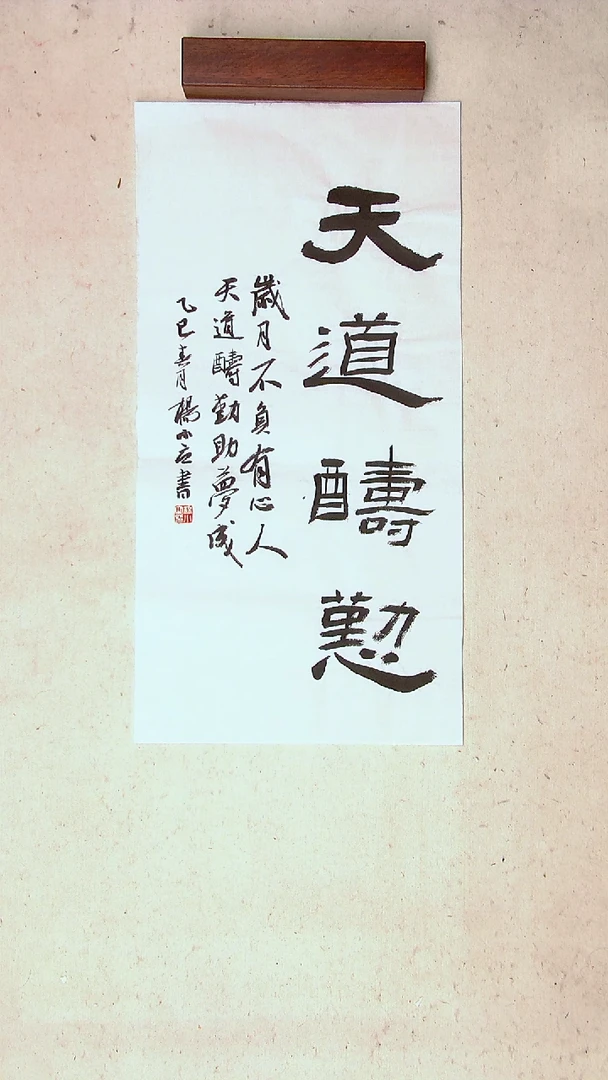 天道醻懃
歲月不負有心人
天道醻勤助夢成
乙巳春月楊小立書